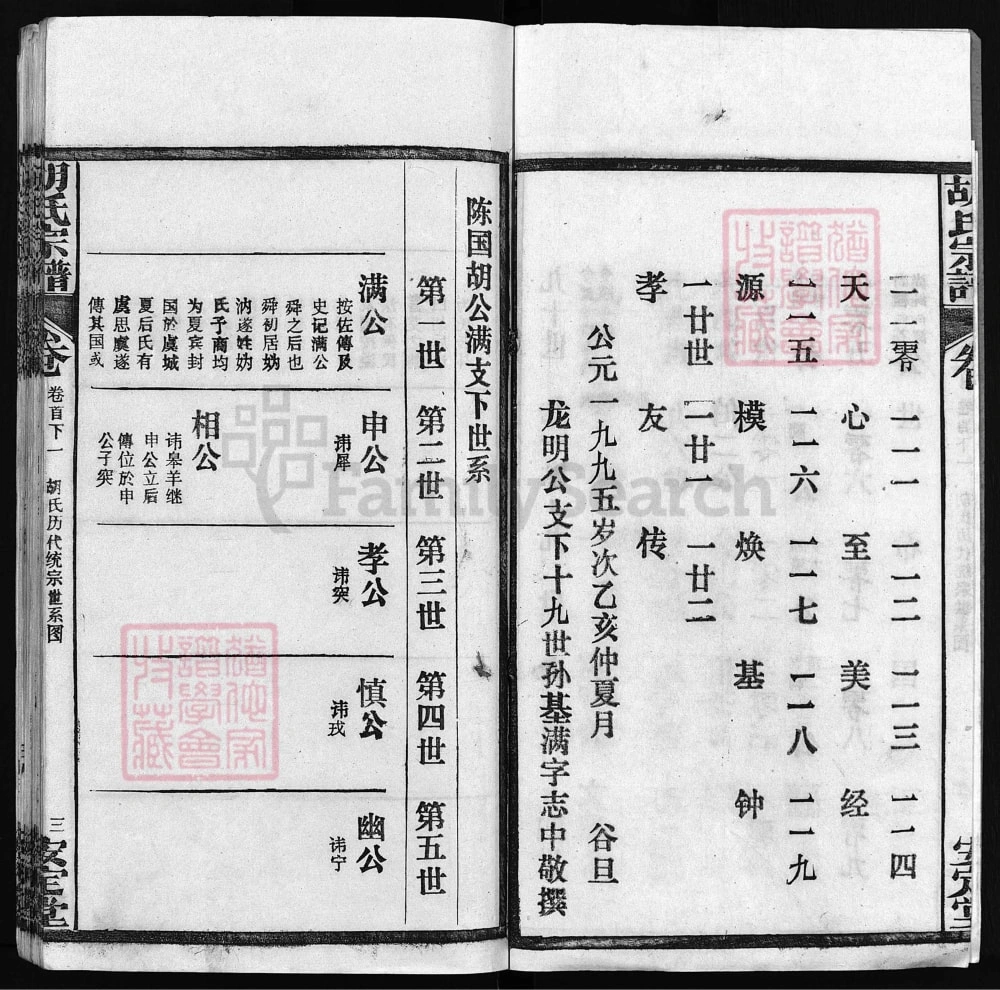 胡氏宗譜
安定堂
一一零 一一一 一一二 一一三 一一四
天 心 至 美 经
一一五 一一六 一一七 一一八 一一九
源 模 焕 基 钟
一廿世 一廿一 一廿二
孝 友 传
公元一九九五岁次乙亥仲夏月 谷旦
龙明公支下十九世孙基满字志中敬撰
陈国胡公满支下世系
第一世 第二世 第三世 第四世 第五世
满公
按佐傳及
史记满公
舜之后也
舜初居妫
汭遂姓妫
氏予商均
为夏宾封
国於虞城
夏后氏有
虞思虞遂
傳其国或
申公
讳犀
相公
讳皋羊继
申公立后
傳位於申
公子突
孝公
讳突
慎公
讳戎
幽公
讳宁
胡氏宗譜
卷首下一 胡氏历代统宗世系图
三
安定堂
FamilySearch